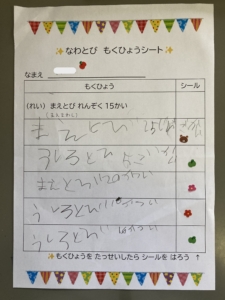 なわとび もくひょうシート
なまえ
もくひょう シール
(れい) まえとび れんぞく 15かい
まえとび
うしろとび 5かい
まえとび20かい
うしろとび
うしろとび
もくひょうを たっせいしたら シールを はろう ↑